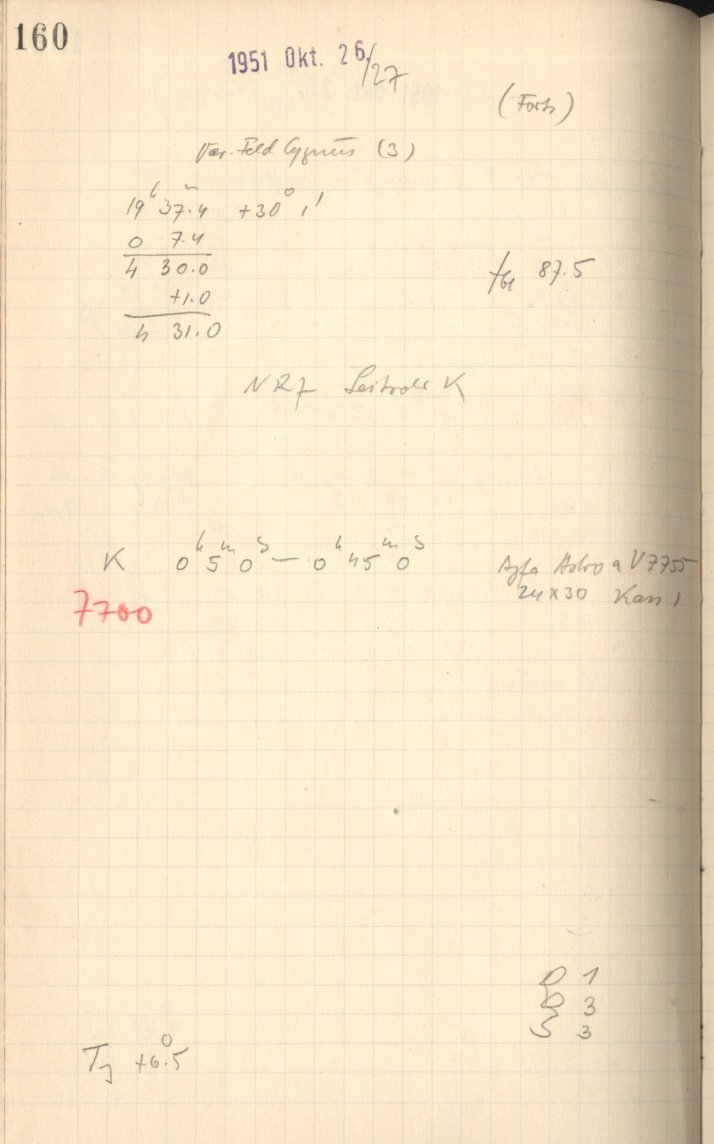 160
1951 Okt. 26./27
(Forts)
Var. Feld Cygnus (3)
19h 37m.4 +30° 1'
0 7.4
4 30.0
+1.0
4 31.0
87.5
NR7 K
K 0h 5m 0s — 0h 45m 0s
Agfa Astro V7755
24x30 Kass 1
7700
D 1
D 3
S 3
+6°.5